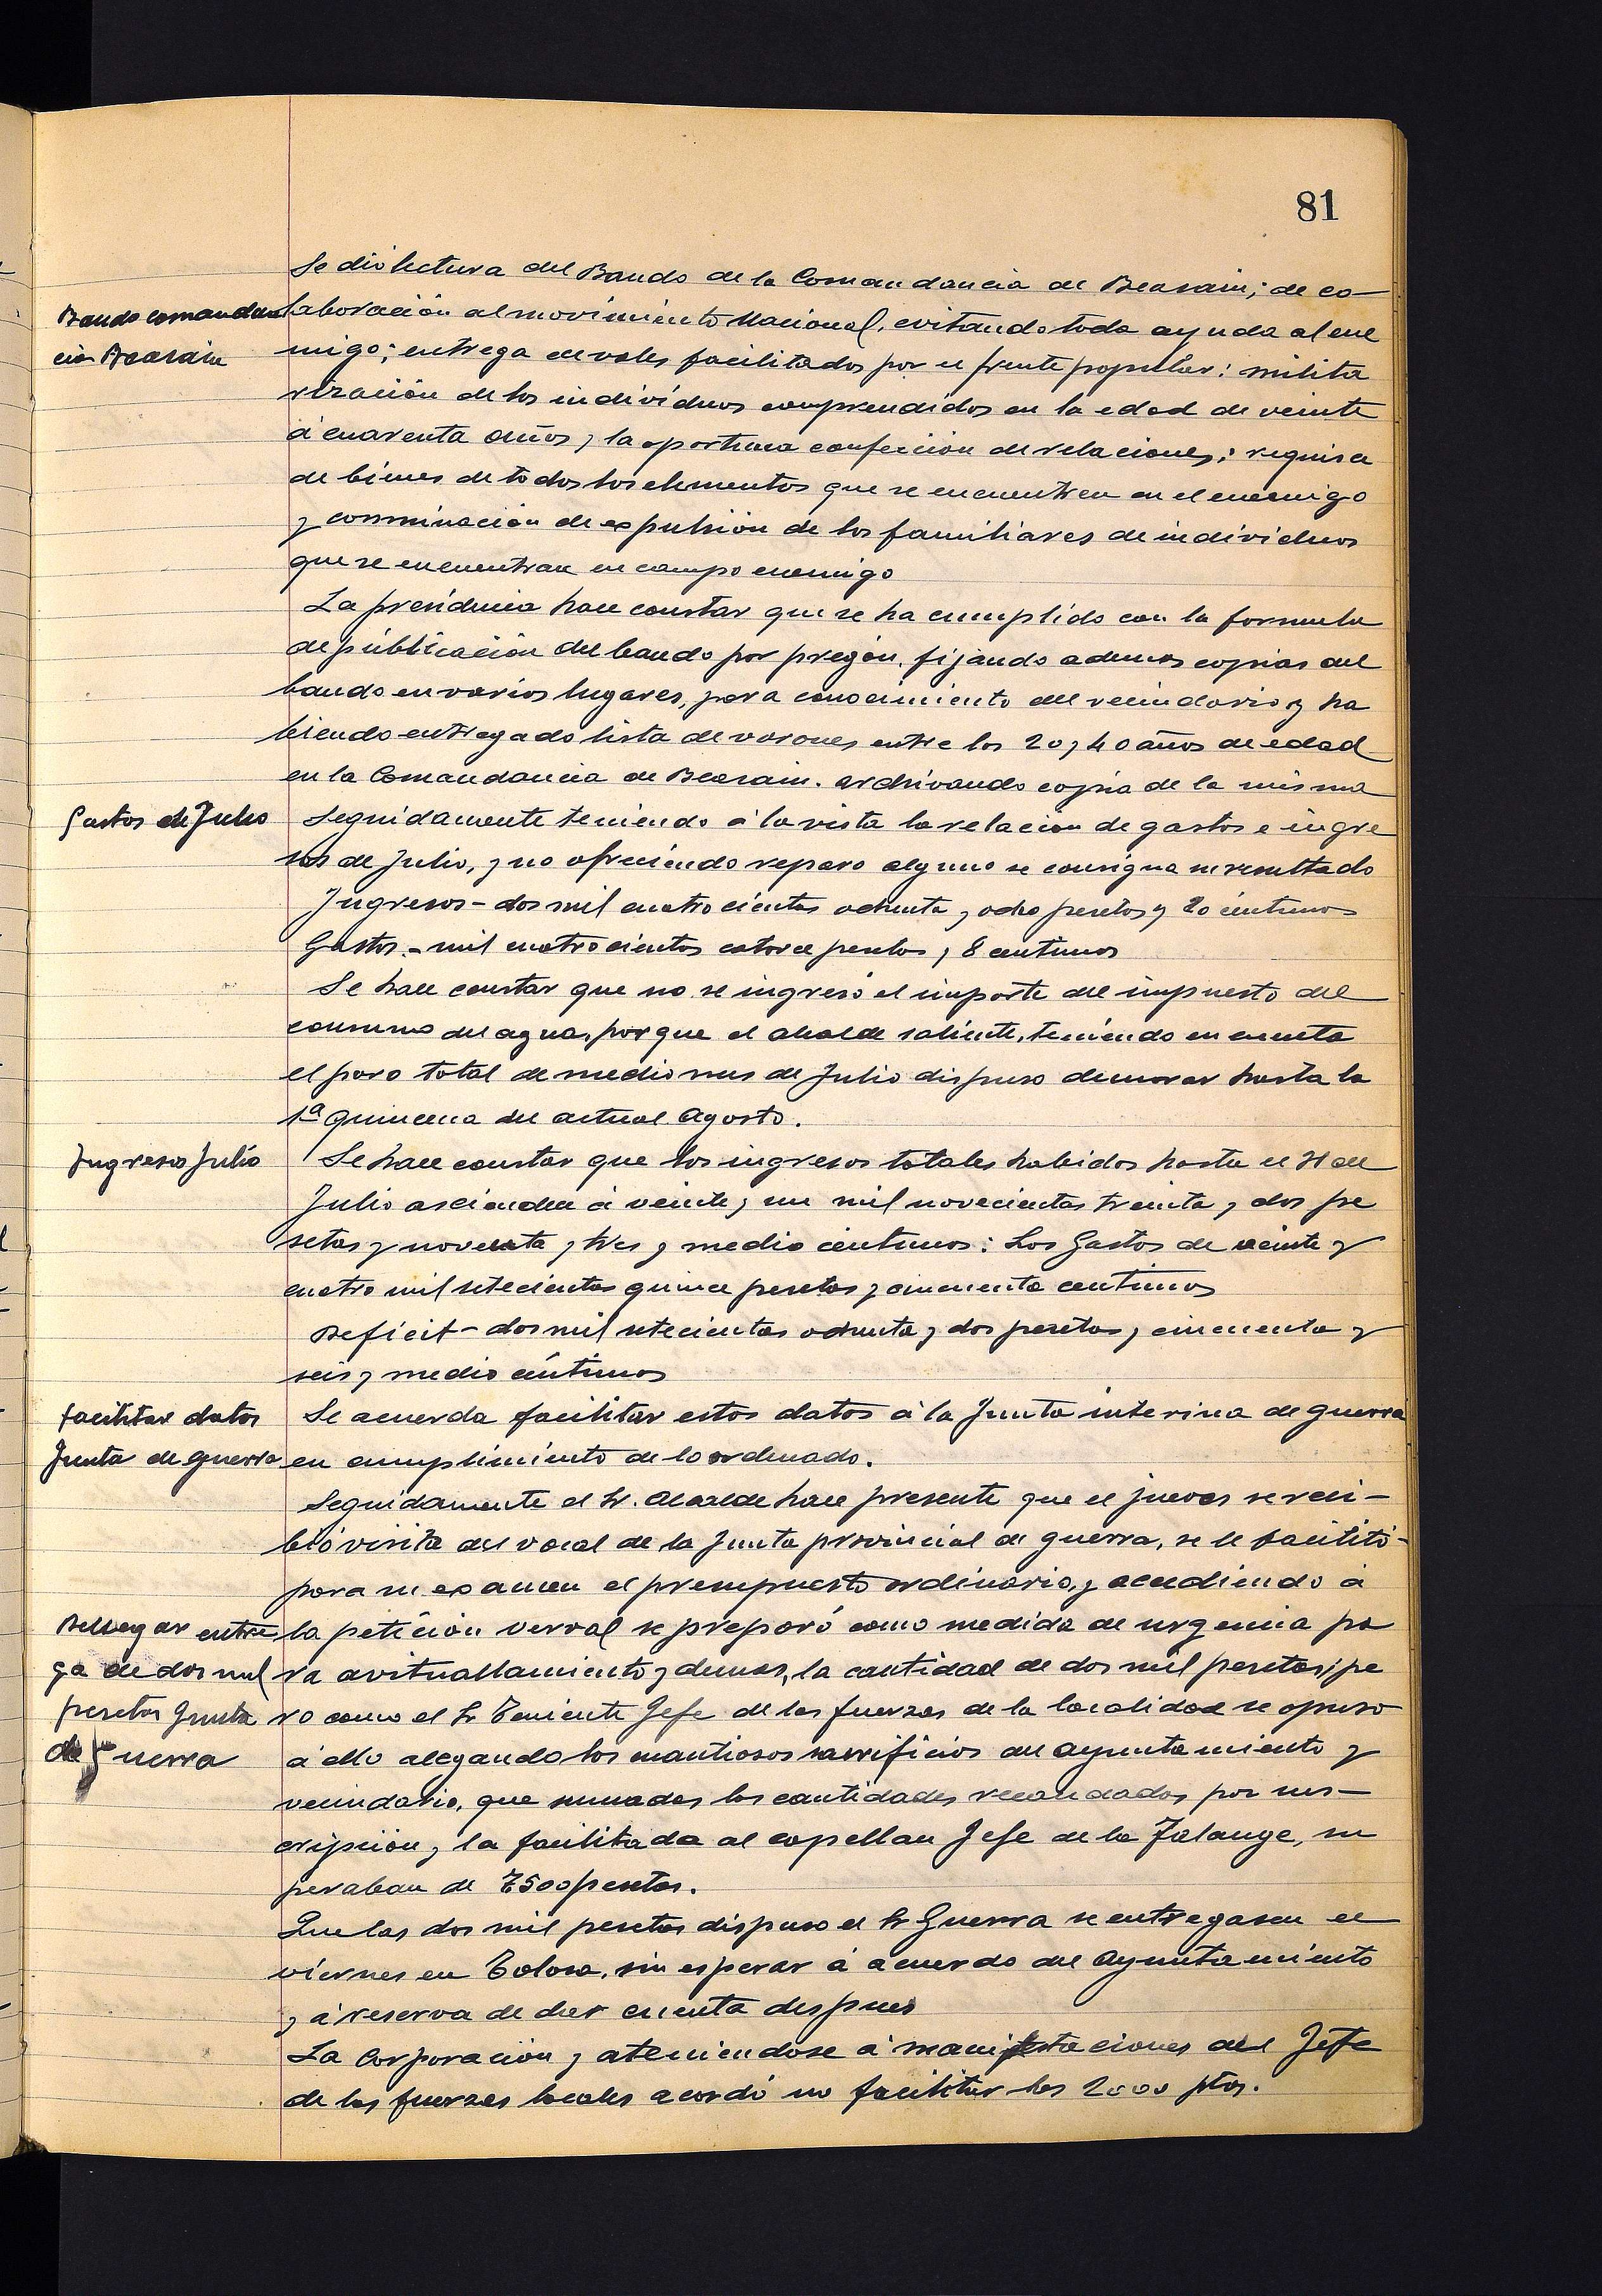 81
Se dio lectura del Bando de la Comandancia de Beasain; de co-
Bando comandan
laboración al movimiento Nacional, evitando toda ayuda al ene
cia Beasain
migo; entrega de vales facilitados por el frente popular: milita
rización de los individuos comprendidos en la edad de veinte
á cuarenta años y la oportuna confección de relaciones: requisa
de bienes de todos los elementos que se encuentren en el enemigo
y conminación de expulsión de los familiares de individuos
que se encuentran en campo enemigo
La presidencia hace constar que se ha cumplido con la formula
de publicación del bando por pregón, fijando ademas copias del
bando en varios lugares, para conocimiento del vecindario y ha
biendo entregado lista de varones entre los 20 y 40 años de edad
en la Comandancia de Beasain. archivando copia de la misma
Gastos de Julio
Seguidamente teniendo á la vista la relacion de gastos e ingre
sos de Julio, y no ofreciendo reparo alguno se consigna su resultado
Ingresos - dos mil cuatrocientas ochenta y ocho pesetas y 20 centimos
Gastos.- mil cuatrocientos catorce pesetas y 8 centimos
Se hace constar que no se ingresó el importe del impuesto del
consumo del agua, porque el alcalde saliente, teniendo en cuenta
el paro total de medio mes de Julio dispuso demorar hasta la
1ª quincena del actual Agosto.
Ingresos Julio
Se hace constar que los ingresos totales habidos hasta el 31 del
Julio ascienden á veinte y un mil novecientas treinta y dos pe
setas y noventa y tres y medio centimos: Los Gastos de veinte y
cuatro mil setecientas quince pesetas y cincuenta centimos
Deficit - dos mil setecientas ochenta y dos pesetas y cincuenta y
seis y medio céntimos
facilitar datos
Se acuerda facilitar estos datos á la Junta interina de guerra
Junta de guerra
en cumplimiento de lo ordenado.
Seguidamente el Sr. Alcalde hace presente que el jueves se reci-
bió visita del vocal de la Junta provincial de guerra, se le facilitó
para su examen el presupuesto ordinario, y accediendo á
Denegar entre
la petición verval se preparó como medida de urgencia pa
ga de dos mil
ra avituallamiento y demas, la cantidad de dos mil pesetas; pe
pesetas Junta
ro como el Sr Teniente Jefe de las fuerzas de la localidad se opuso
de Guerra
á ello alegando los cuantiosos sacrificios del ayuntamiento y
vecindario, que sumadas las cantidades recaudadas por sus-
cripción y la facilitada al capellan Jefe de la Falange, su
peraban de 7500 pesetas.
Que las dos mil pesetas dispuso el Sr Guerra se entregasen el
viernes en Tolosa, sin esperar á acuerdo del Ayuntamiento
y á reserva de dar cuenta despues
La Corporación y ateniendose á manifestaciones del Jefe
de las fuerzas locales acordó no facilitar las 2000 ptas.